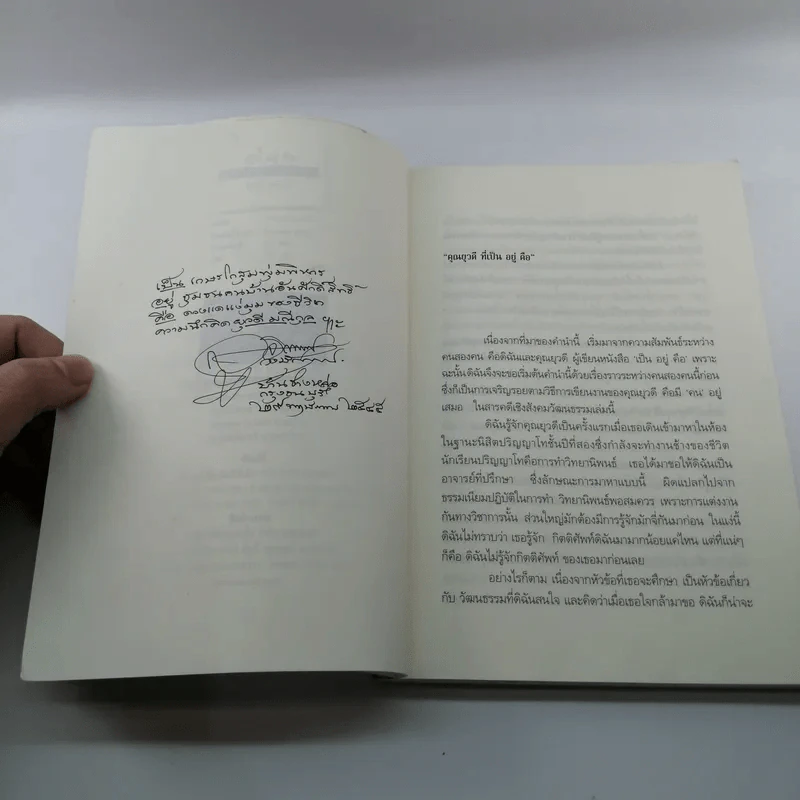 เป็น
อยู่ ชุมชนคนบ้านอันศักดิ์สิทธิ์
คือ ของชีวิต
ความนึกคิด ยุวดี มณีกุล
บ้านช่างหล่อ
กรุงธนบุรี
๒๕๔๕
"คุณยุวดี ที่เป็น อยู่ คือ"
เนื่องจากที่มาของคำนำนี้ เริ่มมาจากความสัมพันธ์ระหว่าง
คนสองคน คือดิฉันและคุณยุวดี ผู้เขียนหนังสือ 'เป็น อยู่ คือ' เพราะ
ฉะนั้นดิฉันจึงจะขอเริ่มต้นคำนำนี้ด้วยเรื่องราวระหว่างคนสองคนนี้ก่อน
ซึ่งก็เป็นการเจริญรอยตามวิธีการเขียนงานของคุณยุวดี คือมี 'คน' อยู่
เสมอ ในสารคดีเชิงสังคมวัฒนธรรมเล่มนี้
ดิฉันรู้จักคุณยุวดีเป็นครั้งแรกเมื่อเธอเดินเข้ามาหาในห้อง
ในฐานะนิสิตปริญญาโทชั้นปีที่สองซึ่งกำลังจะทำงานช้างของชีวิต
นักเรียนปริญญาโทคือการทำวิทยานิพนธ์ เธอได้มาขอให้ดิฉันเป็น
อาจารย์ที่ปรึกษา ซึ่งลักษณะการมาหาแบบนี้ ผิดแปลกไปจาก
ธรรมเนียมปฏิบัติในการทำ วิทยานิพนธ์พอสมควร เพราะการแต่งงาน
กันทางวิชาการนั้น ส่วนใหญ่มักต้องมีการรู้จักมักจี่กันมาก่อน ในแง่นี้
ดิฉันไม่ทราบว่า เธอรู้จัก กิตติศัพท์ดิฉันมามากน้อยแค่ไหน แต่ที่แน่ๆ
ก็คือ ดิฉันไม่รู้จักกิตติศัพท์ ของเธอมาก่อนเลย
อย่างไรก็ตาม เนื่องจากหัวข้อที่เธอจะศึกษา เป็นหัวข้อเกี่ยว
กับ วัฒนธรรมที่ดิฉันสนใจ และคิดว่าเมื่อเธอใจกล้ามาขอ ดิฉันก็น่าจะ